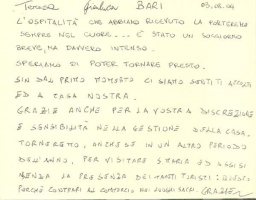 Teresa Gianluca BARI 03.05.04
L'OSPITALITÀ CHE ABBIAMO RICEVUTO LA PORTEREMO
SEMPRE NEL CUORE... È STATO UN SOGGIORNO
BREVE, MA DAVVERO INTENSO.
SPERIAMO DI POTER TORNARE PRESTO.
SIN DAL PRIMO MOMENTO CI SIAMO SENTITI ACCOLTI
ED A CASA NOSTRA.
GRAZIE ANCHE PER LA VOSTRA DISCREZIONE
E SENSIBILITÀ NELLA GESTIONE DELLA CASA.
TORNEREMO, ANCHE SE IN UN ALTRO PERIODO
DELL'ANNO, PER VISITARE ED ASSISI
SENZA LA PRESENZA DEI TANTI TURISTI
PERCHÉ CONTRARI AL COMMERCIO NEI LUOGHI SACRI. GRAZIE